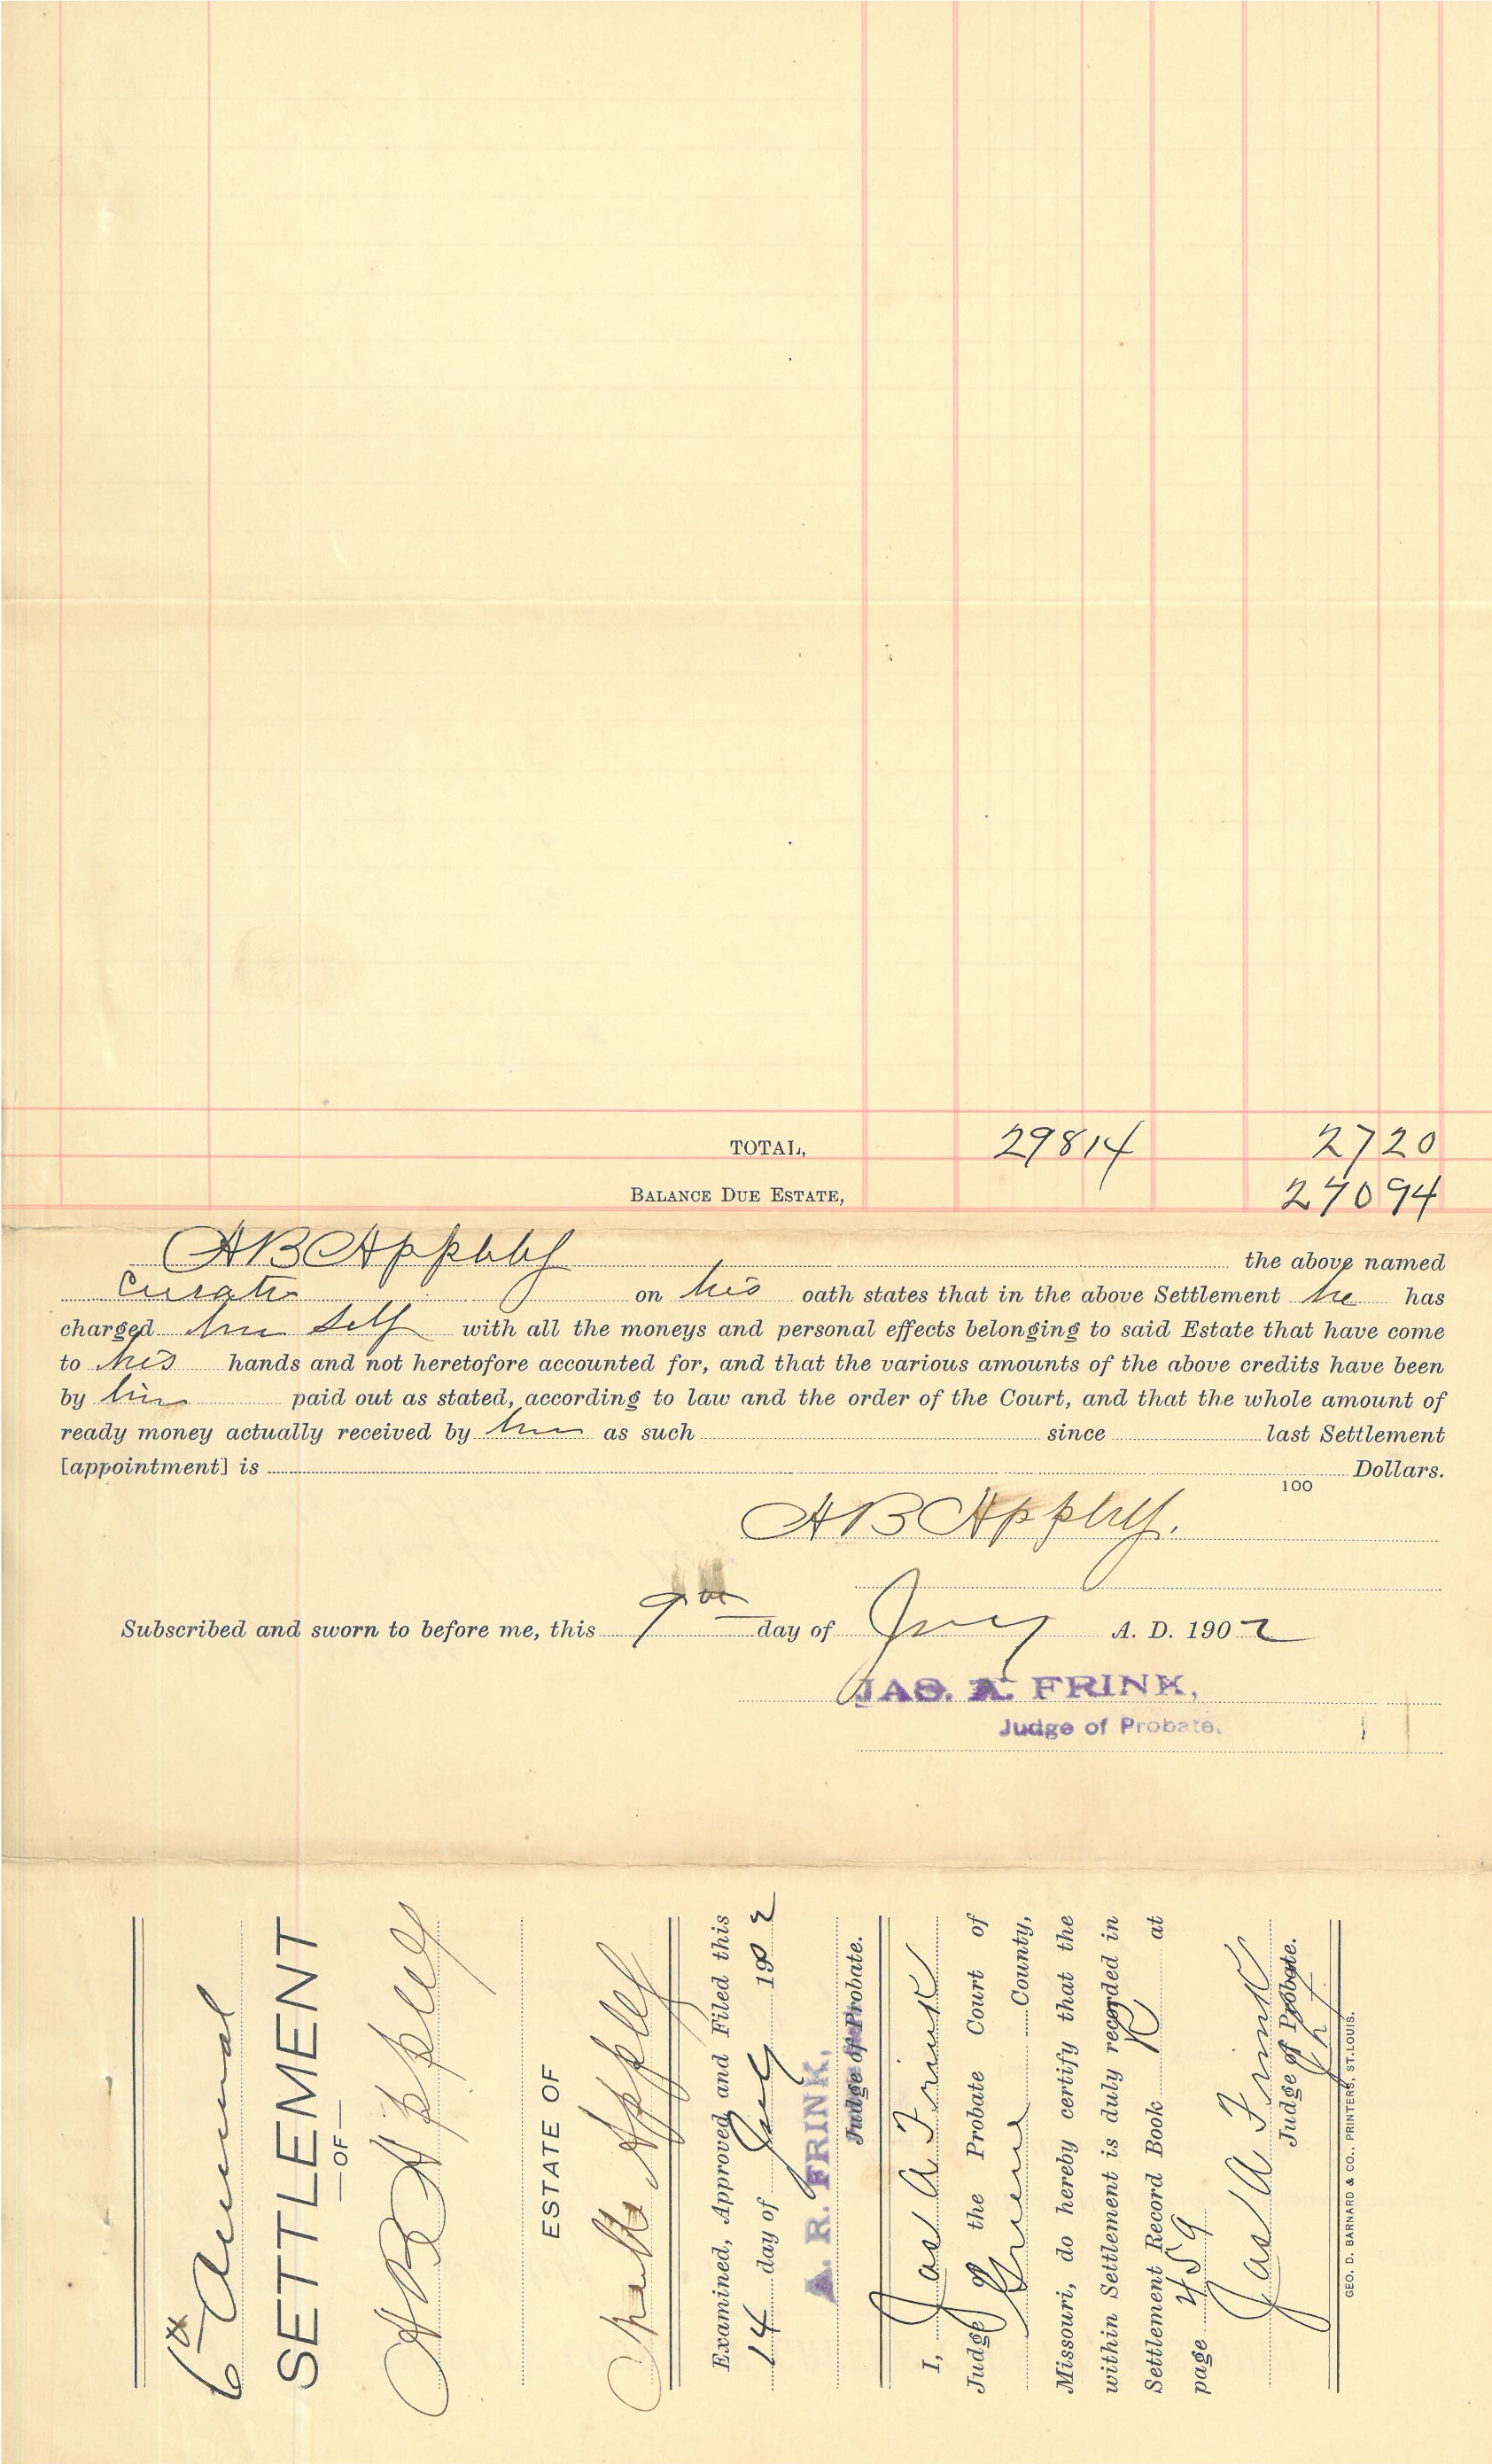 TOTAL, 298 14 27 20
BALANCE DUE ESTATE, 270 94
A B Appleby the above named
Curator on his oath states that in the above Settlement he has
charged him self with all the moneys and personal effects belonging to said Estate that have come
to his hands and not heretofore accounted for, and that the various amounts of the above credits have been
by him paid out as stated, according to law and the order of the Court, and that the whole amount of
ready money actually received by him as such since last Settlement
[appointment] is Dollars.
100
A B Appleby.
Subscribed and sworn to before me, this 9th day of July A. D. 1902
JAS. A. FRINK,
Judge of Probate.
6th Annual
SETTLEMENT
—OF—
A B Appleby
ESTATE OF
Appleby
Examined, Approved and Filed this
14 day of July 1902
A. R. FRINK,
Judge of Probate.
I, Jas A Frink
Judge of the Probate Court of
Greene County,
Missouri, do hereby certify that the
within Settlement is duly recorded in
Settlement Record Book R at
page 459
Jas A Frink
Judge of Probate.
GEO. D. BARNARD & CO., PRINTERS, ST. LOUIS.